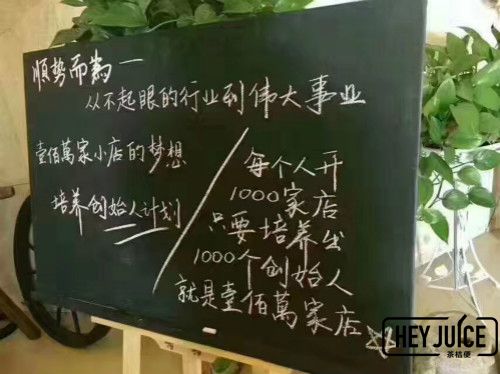 順势而為一
从不起眼的行业到伟大事业
壹佰萬家小店的梦想
培养创始人计划
每个人开
1000家店
只要培养出
1000个创始人
就是壹佰萬家店
HEY JUICE
茶桔便